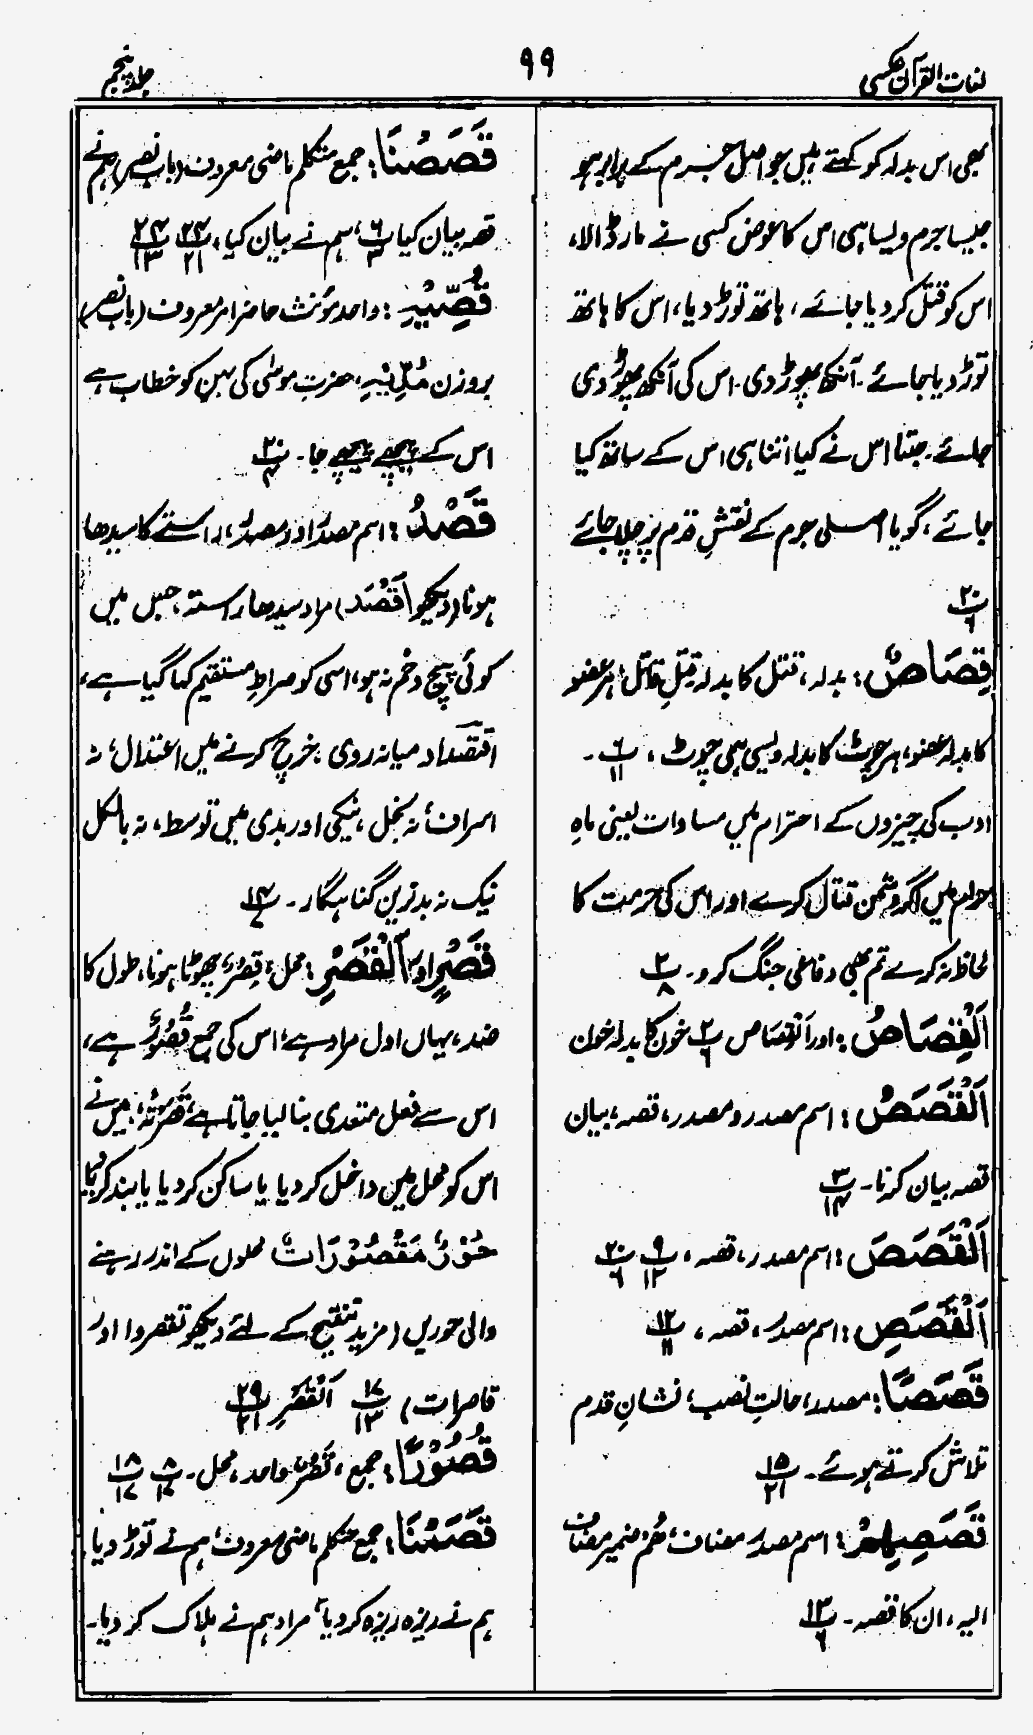 لغات القرآن عکسی
۹۹
جلد پنجم
بھی اس بدلہ کو کہتے ہیں جو اصل جرم کے برابر ہو
جیسا جرم ویسا ہی اس کا عوض کسی نے مار ڈالا،
اس کو قتل کر دیا جائے، ہاتھ توڑ دیا، اس کا ہاتھ
توڑ دیا جائے۔ آنکھ پھوڑ دی۔ اس کی آنکھ پھوڑ دی
جائے۔ جتنا اس نے کیا اتنا ہی اس کے ساتھ کیا
جائے، گویا اصلی جرم کے نقشِ قدم پر چلا جائے
پ۲۰/۶
قِصَاصٌ: بدلہ، قتل کا بدلہ قتلِ قاتل، ہر عضو
کا بدلہ عضو، ہر چوٹ کا بدلہ ویسی ہی چوٹ، پ۶/۱۱۔
ادب کی چیزوں کے احترام میں مساوات یعنی ماہِ
حرام میں اگر دشمن قتال کرے اور اس کی حرمت کا
لحاظ نہ کرے تم بھی دفاعی جنگ کرو۔ پ۲/۸
اَلْقِصَاصُ: اور القصاص پ۲/۶ خون کا بدلہ خون
اَلْقَصَصُ: اسم مصدر و مصدر، قصہ، بیان
قصہ بیان کرنا۔ پ۳/۱۴
اَلْقَصَصَ: اسم مصدر، قصہ، پ۹/۱۲ پ۲۰/۶
اَلْقَصَصِ: اسم مصدر، قصہ، پ۱۲/۱۱
قَصَصًا: مصدر، حالتِ نصب، نشانِ قدم
تلاش کرتے ہوئے۔ پ۱۵/۲۱
قَصَصِهِمْ: اسم مصدر مضاف، ھُم ضمیر مضاف
الیہ، ان کا قصہ۔ پ۱۳/۶
قَصَصْنَا: جمع متکلم ماضی معروف (باب نصر) ہم نے
قصہ بیان کیا پ۶/۳، ہم نے بیان کیا، پ۲۴/۱۳
قُصِّیْهِ: واحد مؤنث حاضر امر معروف (باب نصر)
بروزن مُدِّیْهِ، حضرت موسیٰ کی بہن کو خطاب ہے
اس کے پیچھے پیچھے جا۔ پ۲۰/۴
قَصْدُ: اسم مصدر اور مصدر، راستے کا سیدھا
ہونا (دیکھو اَقْصَد) مراد سیدھا راستہ، جس میں
کوئی پیچ و خم نہ ہو، اسی کو صراطِ مستقیم کہا گیا ہے،
اقتصاد میانہ روی، خرچ کرنے میں اعتدال، نہ
اسراف، نہ بخل، نیکی اور بدی میں توسط، نہ بالکل
نیک نہ بدترین گناہگار۔ پ۱۴/۷
قَصْرٍ اور اَلْقَصْرِ: محل، قِصَرٌ، چھوٹا ہونا، طول کا
ضد، یہاں اول مراد ہے، اس کی جمع قُصُوْرٌ ہے،
اس سے فعل متعدی بنا لیا جاتا ہے، قَصَرْتُهُ، میں نے
اس کو محل میں داخل کر دیا یا ساکن کر دیا یا بند کر دیا
حُوْرٌ مَقْصُوْرَاتٌ محلوں کے اندر رہنے
والی حوریں (مزید تنقیح کے لئے دیکھو تقصروا اور
قاصرات) پ۱۷/۱۳ اَلْقَصْرِ پ۲۹/۲۱
قُصُوْرًا: جمع، قَصْرٌ واحد، محل۔ پ۸/۱۷ پ۱۸/۱۷
قَصَمْنَا: جمع متکلم ماضی معروف، ہم نے توڑ دیا
ہم نے ریزہ ریزہ کر دیا، مراد ہم نے ہلاک کر دیا۔